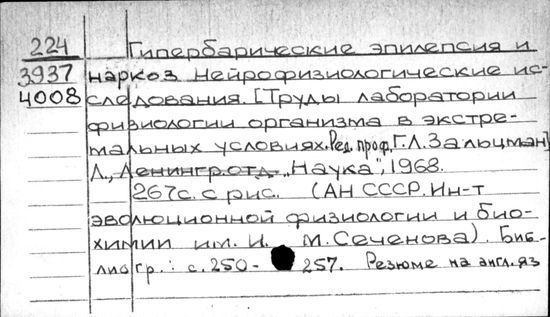 224 Гипербарические эпилепсия и
3937 наркоз. Нейрофизиологические ис-
4008 следования. [Труды лаборатории
физиологии организма в экстре-
мальных условиях. Ред. проф. Г.Л. Зальцман]
Л., Ленингр. отд. "Наука", 1968.
267с. с рис. (АН СССР. Ин-т
эволюционной физиологии и био-
химии им. И. М. Сеченова). Биб-
лиогр.: с. 250-257. Резюме на англ. яз